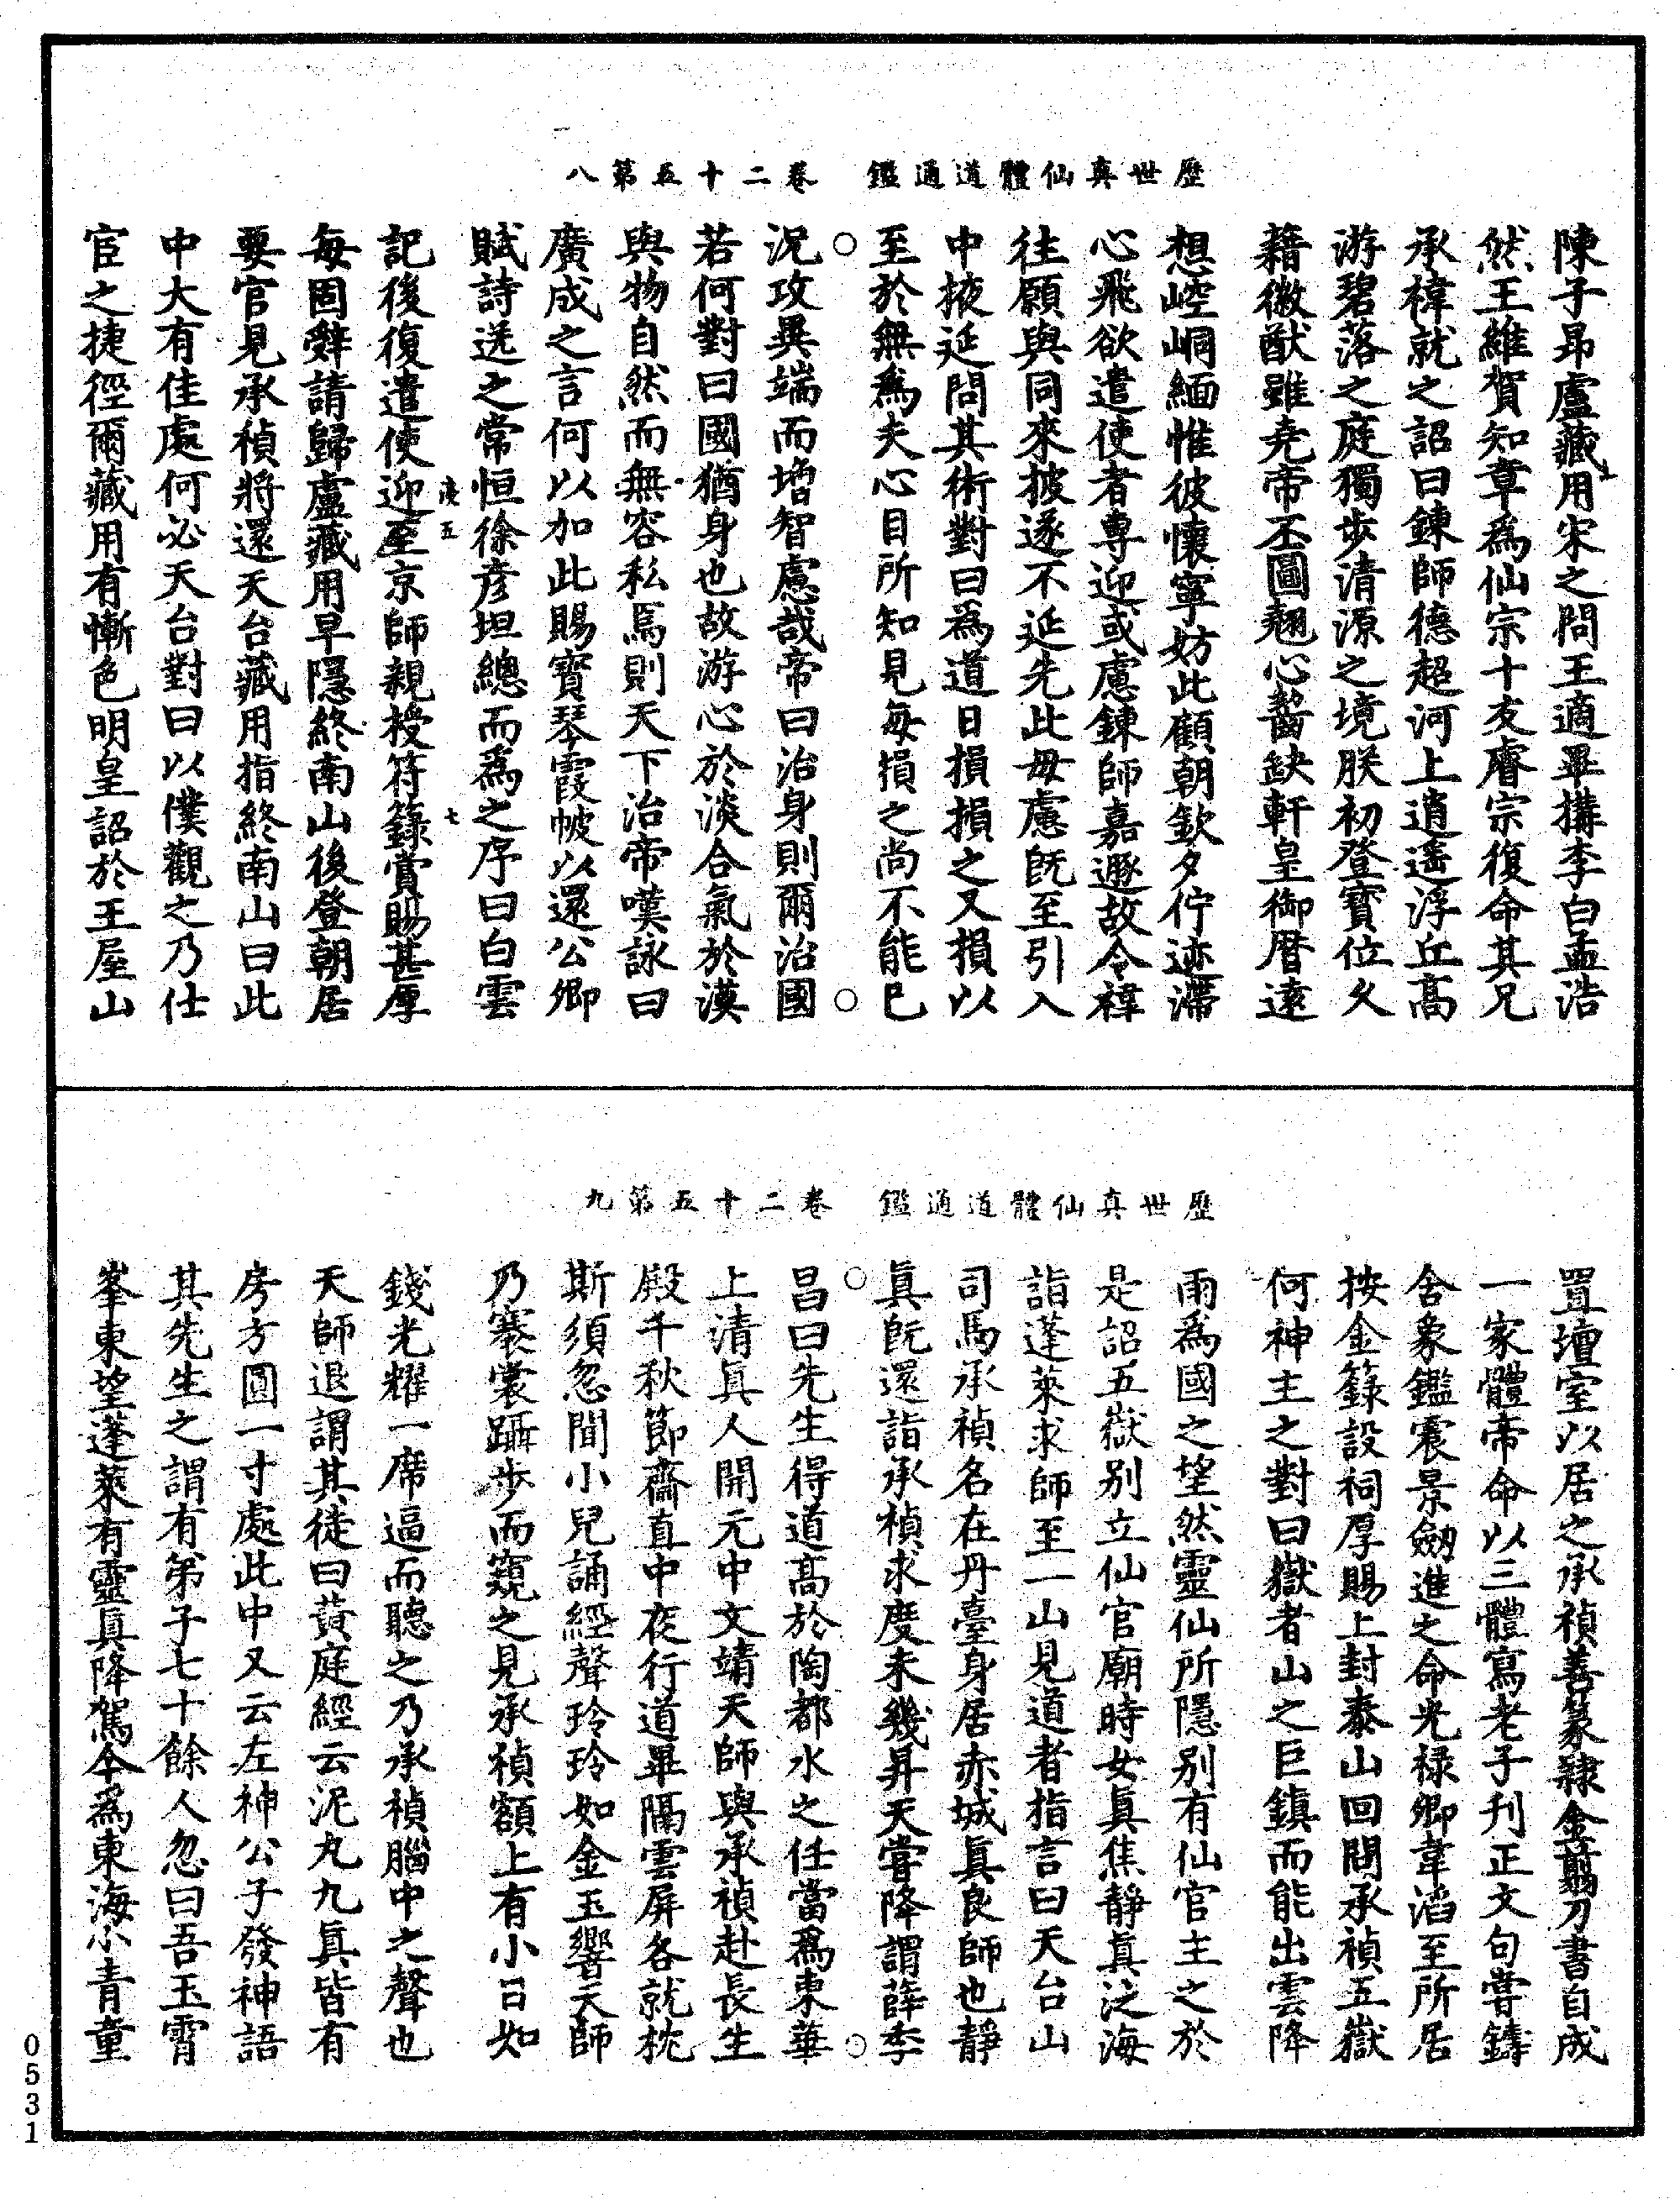 歷世真仙體道通鑑　卷二十五第八
陳子昂盧藏用宋之問王適畢搆李白孟浩
然王維賀知章為仙宗十友睿宗復命其兄
承禕就之詔曰鍊師德超河上逍遙浮丘高
游碧落之庭獨步清源之境朕初登寶位久
藉徽猷雖堯帝丕圖翹心齧缺軒皇御曆遠
想崆峒緬惟彼懷寧妨此顧朝欽夕佇迹滯
心飛欲遣使者專迎或慮鍊師嘉遯故令禕
往願與同來披遂不延先此毋慮旣至引入
中掖延問其術對曰為道日損損之又損以
至於無為夫心目所知見每損之尚不能已
況攻異端而增智慮哉帝曰治身則爾治國
若何對曰國猶身也故游心於淡合氣於漠
與物自然而無容私焉則天下治帝嘆詠曰
廣成之言何以加此賜寶琴霞帔以還公卿
賦詩送之常恒徐彦坦總而為之序曰白雲
記後復遣使迎至京師親授符籙賞賜甚厚
每固辭請歸盧藏用早隱終南山後登朝居
要官見承禎將還天台藏用指終南山曰此
中大有佳處何必天台對曰以僕觀之乃仕
宦之捷徑爾藏用有慚色明皇詔於王屋山
歷世真仙體道通鑑　卷二十五第九
置壇室以居之承禎善篆隸金剪刀書自成
一家體帝命以三體寫老子刊正文句嘗鑄
含象鑑震景劒進之命光禄卿韋滔至所居
按金籙設祠厚賜上封泰山回問承禎五嶽
何神主之對曰嶽者山之巨鎮而能出雲降
雨為國之望然靈仙所隱别有仙官主之於
是詔五嶽别立仙官廟時女真焦靜真泛海
詣蓬萊求師至一山見道者指言曰天台山
司馬承禎名在丹臺身居赤城真良師也靜
真旣還詣承禎求度未幾昇天嘗降謂薛季
昌曰先生得道高於陶都水之任當為東華
上清真人開元中文靖天師與承禎赴長生
殿千秋節齋直中夜行道畢隔雲屏各就枕
斯須忽聞小兒誦經聲玲玲如金玉響天師
乃褰裳躡步而窺之見承禎額上有小日如
錢光耀一席逼而聽之乃承禎腦中之聲也
天師退謂其徒曰黃庭經云泥丸九真皆有
房方圓一寸處此中又云左神公子發神語
其先生之謂有弟子七十餘人忽曰吾玉霄
峯東望蓬萊有靈真降駕今為東海小青童
0531